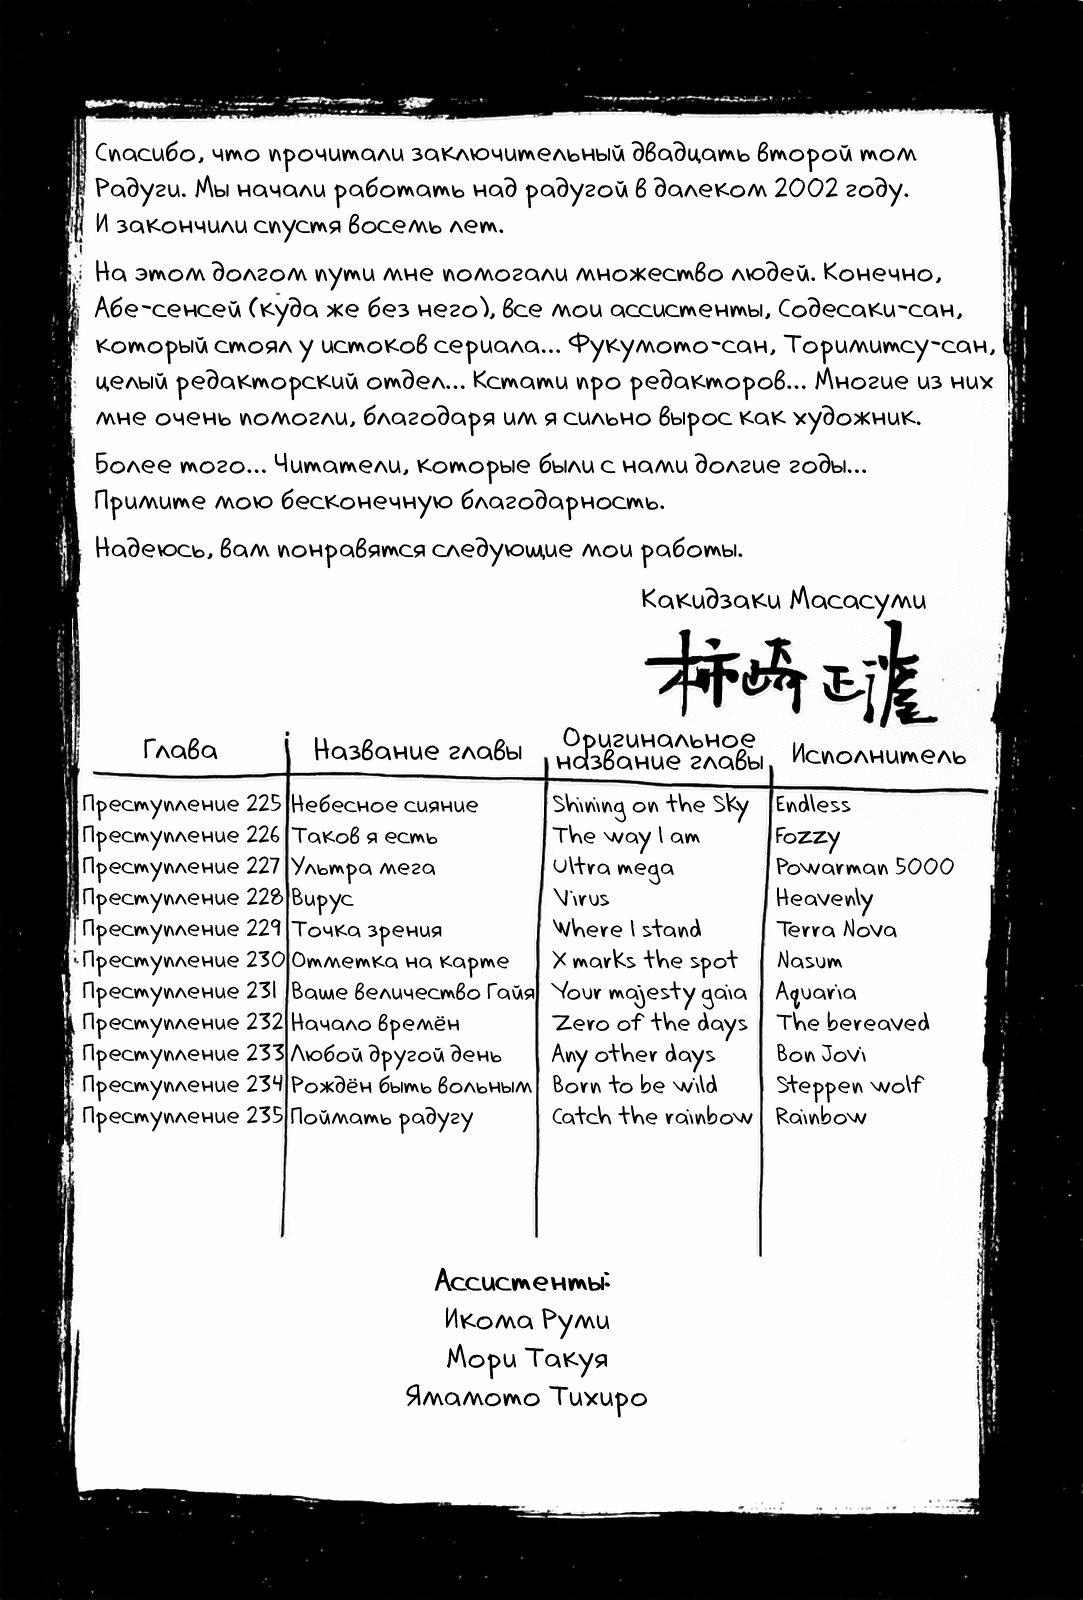 Спасибо, что прочитали заключительный двадцать второй том
Радуги. Мы начали работать над радугой в далеком 2002 году.
И закончили спустя восемь лет.
На этом долгом пути мне помогали множество людей. Конечно,
Абе-сенсей (куда же без него), все мои ассистенты, Содесаки-сан,
который стоял у истоков сериала... Фукумото-сан, Торимитсу-сан,
целый редакторский отдел... Кстати про редакторов... Многие из них
мне очень помогли, благодаря им я сильно вырос как художник.
Более того... Читатели, которые были с нами долгие годы...
Примите мою бесконечную благодарность.
Надеюсь, вам понравятся следующие мои работы.
Какидзаки Масасуми
柿崎正澄
Глава Название главы Оригинальное название главы Исполнитель
Преступление 225 Небесное сияние Shining on the Sky Endless
Преступление 226 Таков я есть The way I am Fozzy
Преступление 227 Ультра мега Ultra mega Powarman 5000
Преступление 228 Вирус Virus Heavenly
Преступление 229 Точка зрения Where I stand Terra Nova
Преступление 230 Отметка на карте X marks the spot Nasum
Преступление 231 Ваше величество Гайя Your majesty gaia Aquaria
Преступление 232 Начало времён Zero of the days The bereaved
Преступление 233 Любой другой день Any other days Bon Jovi
Преступление 234 Рождён быть вольным Born to be wild Steppen wolf
Преступление 235 Поймать радугу Catch the rainbow Rainbow
Ассистенты:
Икома Руми
Мори Такуя
Ямамото Тихиро